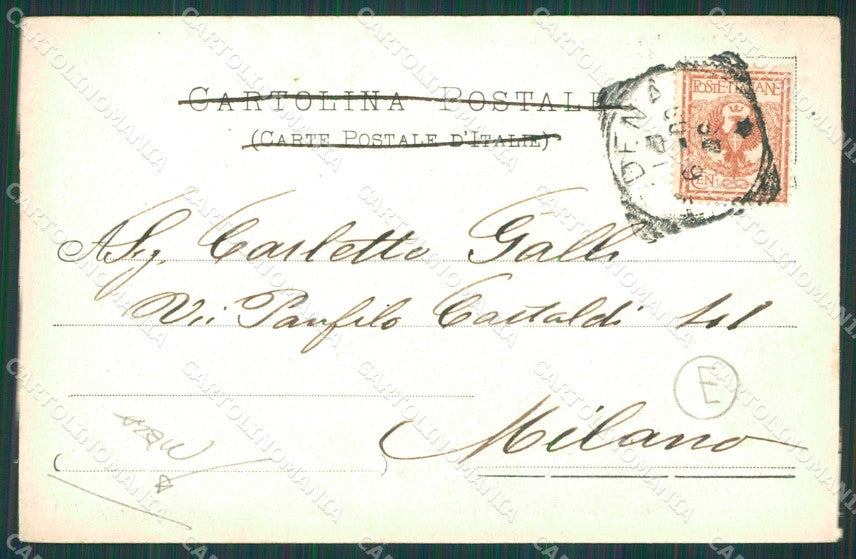 CARTOLINA POSTALE
(CARTE POSTALE D'ITALIE)
POSTE ITALIANE
CEN. 2
DENA
A Sig. Carletto Galli
Via Panfilo Castaldi
Milano
E
CARTOLINOMANIA